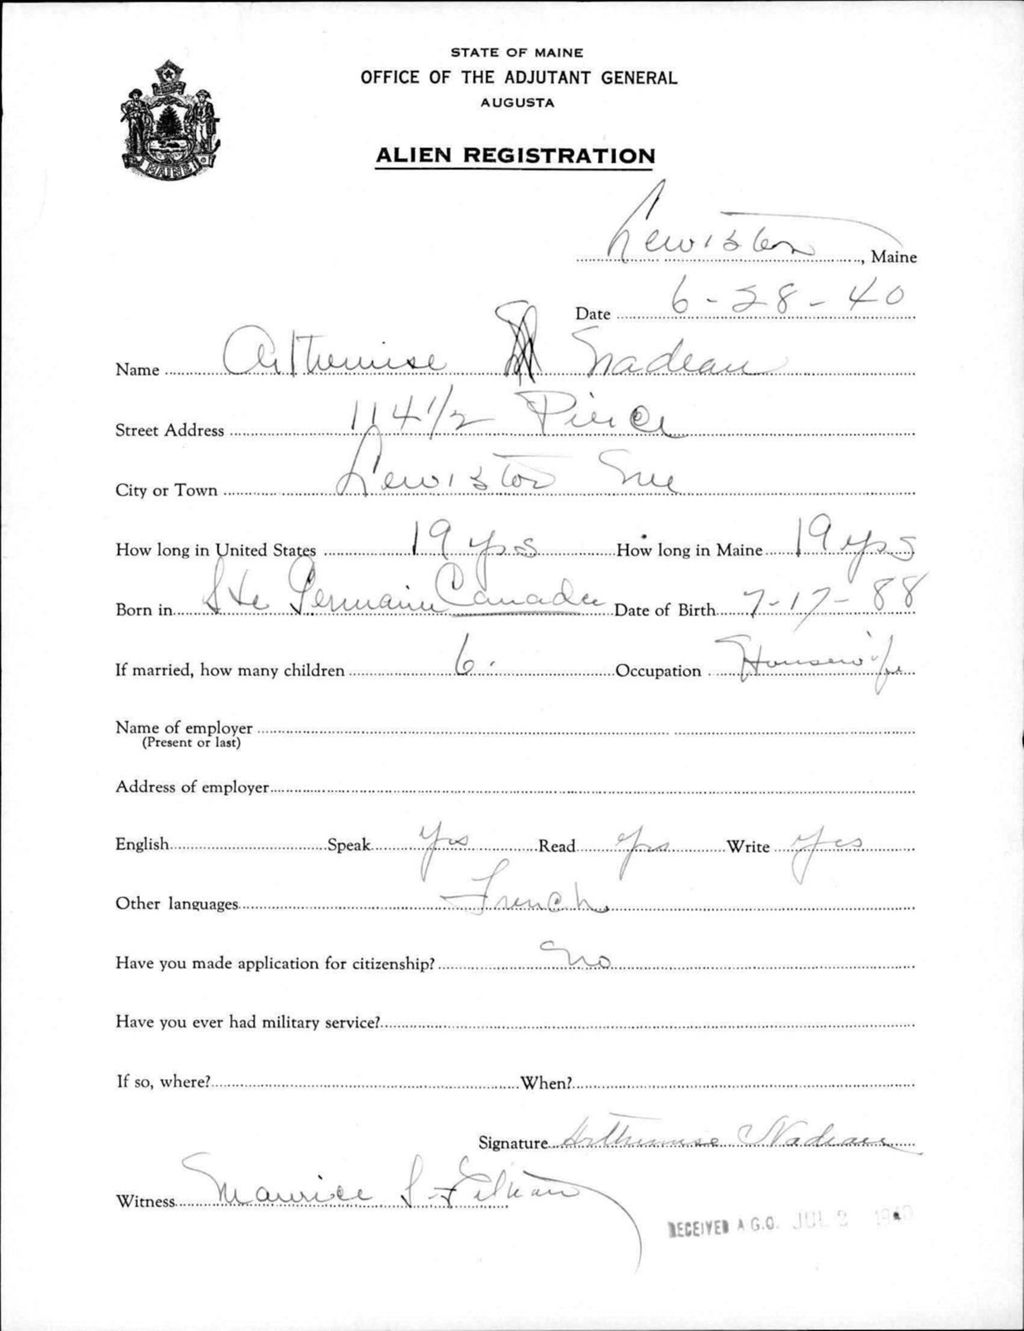 STATE OF MAINE
OFFICE OF THE ADJUTANT GENERAL
AUGUSTA
ALIEN REGISTRATION
MAINE
Lewiston, Maine
Date 6-28-40
Name Arthemise Nadeau
Street Address 114 1/2 Pierce
City or Town Lewiston Me
How long in United States 19 yrs How long in Maine 19 yrs
Born in Ste Germaine Canada Date of Birth 7-17-88
If married, how many children 6. Occupation Housewife
Name of employer
(Present or last)
Address of employer
English Speak Yes Read Yes Write Yes
Other languages French
Have you made application for citizenship? No
Have you ever had military service?
If so, where? When?
Signature Arthemise Nadeau
Witness Maurice L
RECEIVED A.G.O. JUL 2 1940